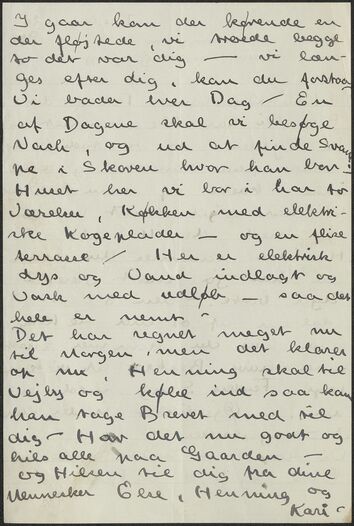 I gaar kom der kørende en
der fløjtede, vi troede begge
to det var dig — vi læn-
ges efter dig, kan du forstaa
Vi bader hver Dag — En
af Dagene skal vi besøge
Vach, og ud at finde Svam
pe i Skoven hvor han bor.
Huset her vi bor i har to
Værelser, Køkken, med elektri-
ske Kogeplader — og en flise
terrasse — Her er elektrisk
Lys og Vand indlagt og
Vask med udløb — saa det
hele er nemt —
Det har regnet meget nu
til Morgen, men det klarer
op nu, Henning skal til
Vejby og købe ind saa kan
han tage Brevet med til
dig — Hav det nu godt og
hils alle paa Gaarden —
og Hilsen til dig fra dine
Mennesker Else, Henning og
Kari —